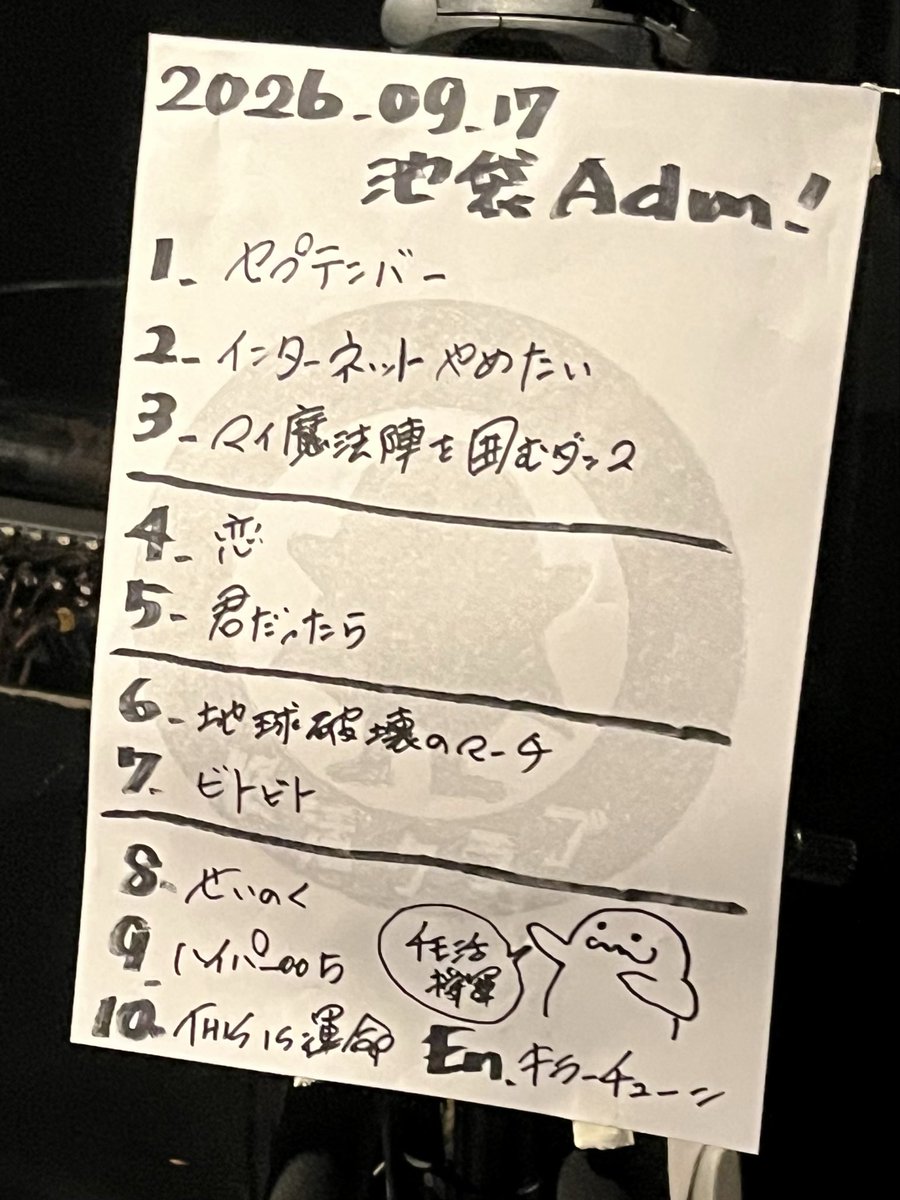 2026_09_17
池袋Adm!
1_ セプテンバー
2_ インターネットやめたい
3_ マイ魔法陣を囲むダンス
4_ 恋
5_ 君だったら
6_ 地球破壊のマーチ
7_ ビトビト
8_ せいのく
9_ ハイパー005
10_ THIS IS 運命
En. キラーチューン